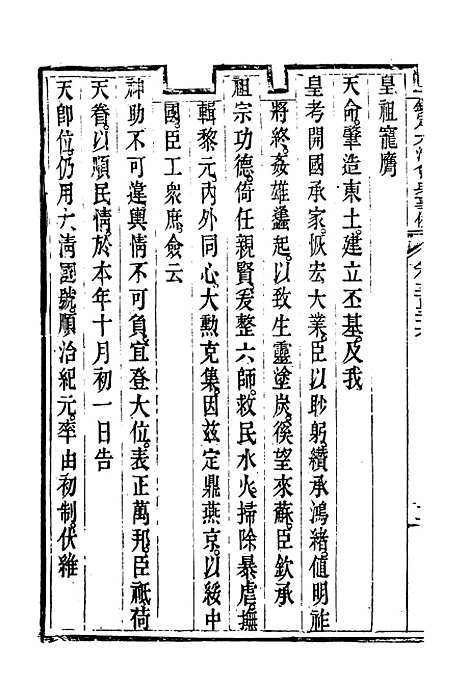 皇祖寵膺
天命。肇造東土。建立丕基。及我
皇考開國承家。恢宏大業。臣以眇躬。纘承鴻緒。值明祚
將終。姦雄蠭起。以致生靈塗炭。徯望來蘇。臣欽承
祖宗功德。倚任親賢。爰整六師。救民水火。掃除暴虐。撫
輯黎元。內外同心。大勳克集。因茲定鼎燕京。以綏中
國。臣工衆庶。僉云
神助不可違。輿情不可負。宜登大位。表正萬邦。臣祗荷
天眷。以順民情。於本年十月初一日告
天卽位。仍用大淸國號。順治紀元。率由初制。伏維